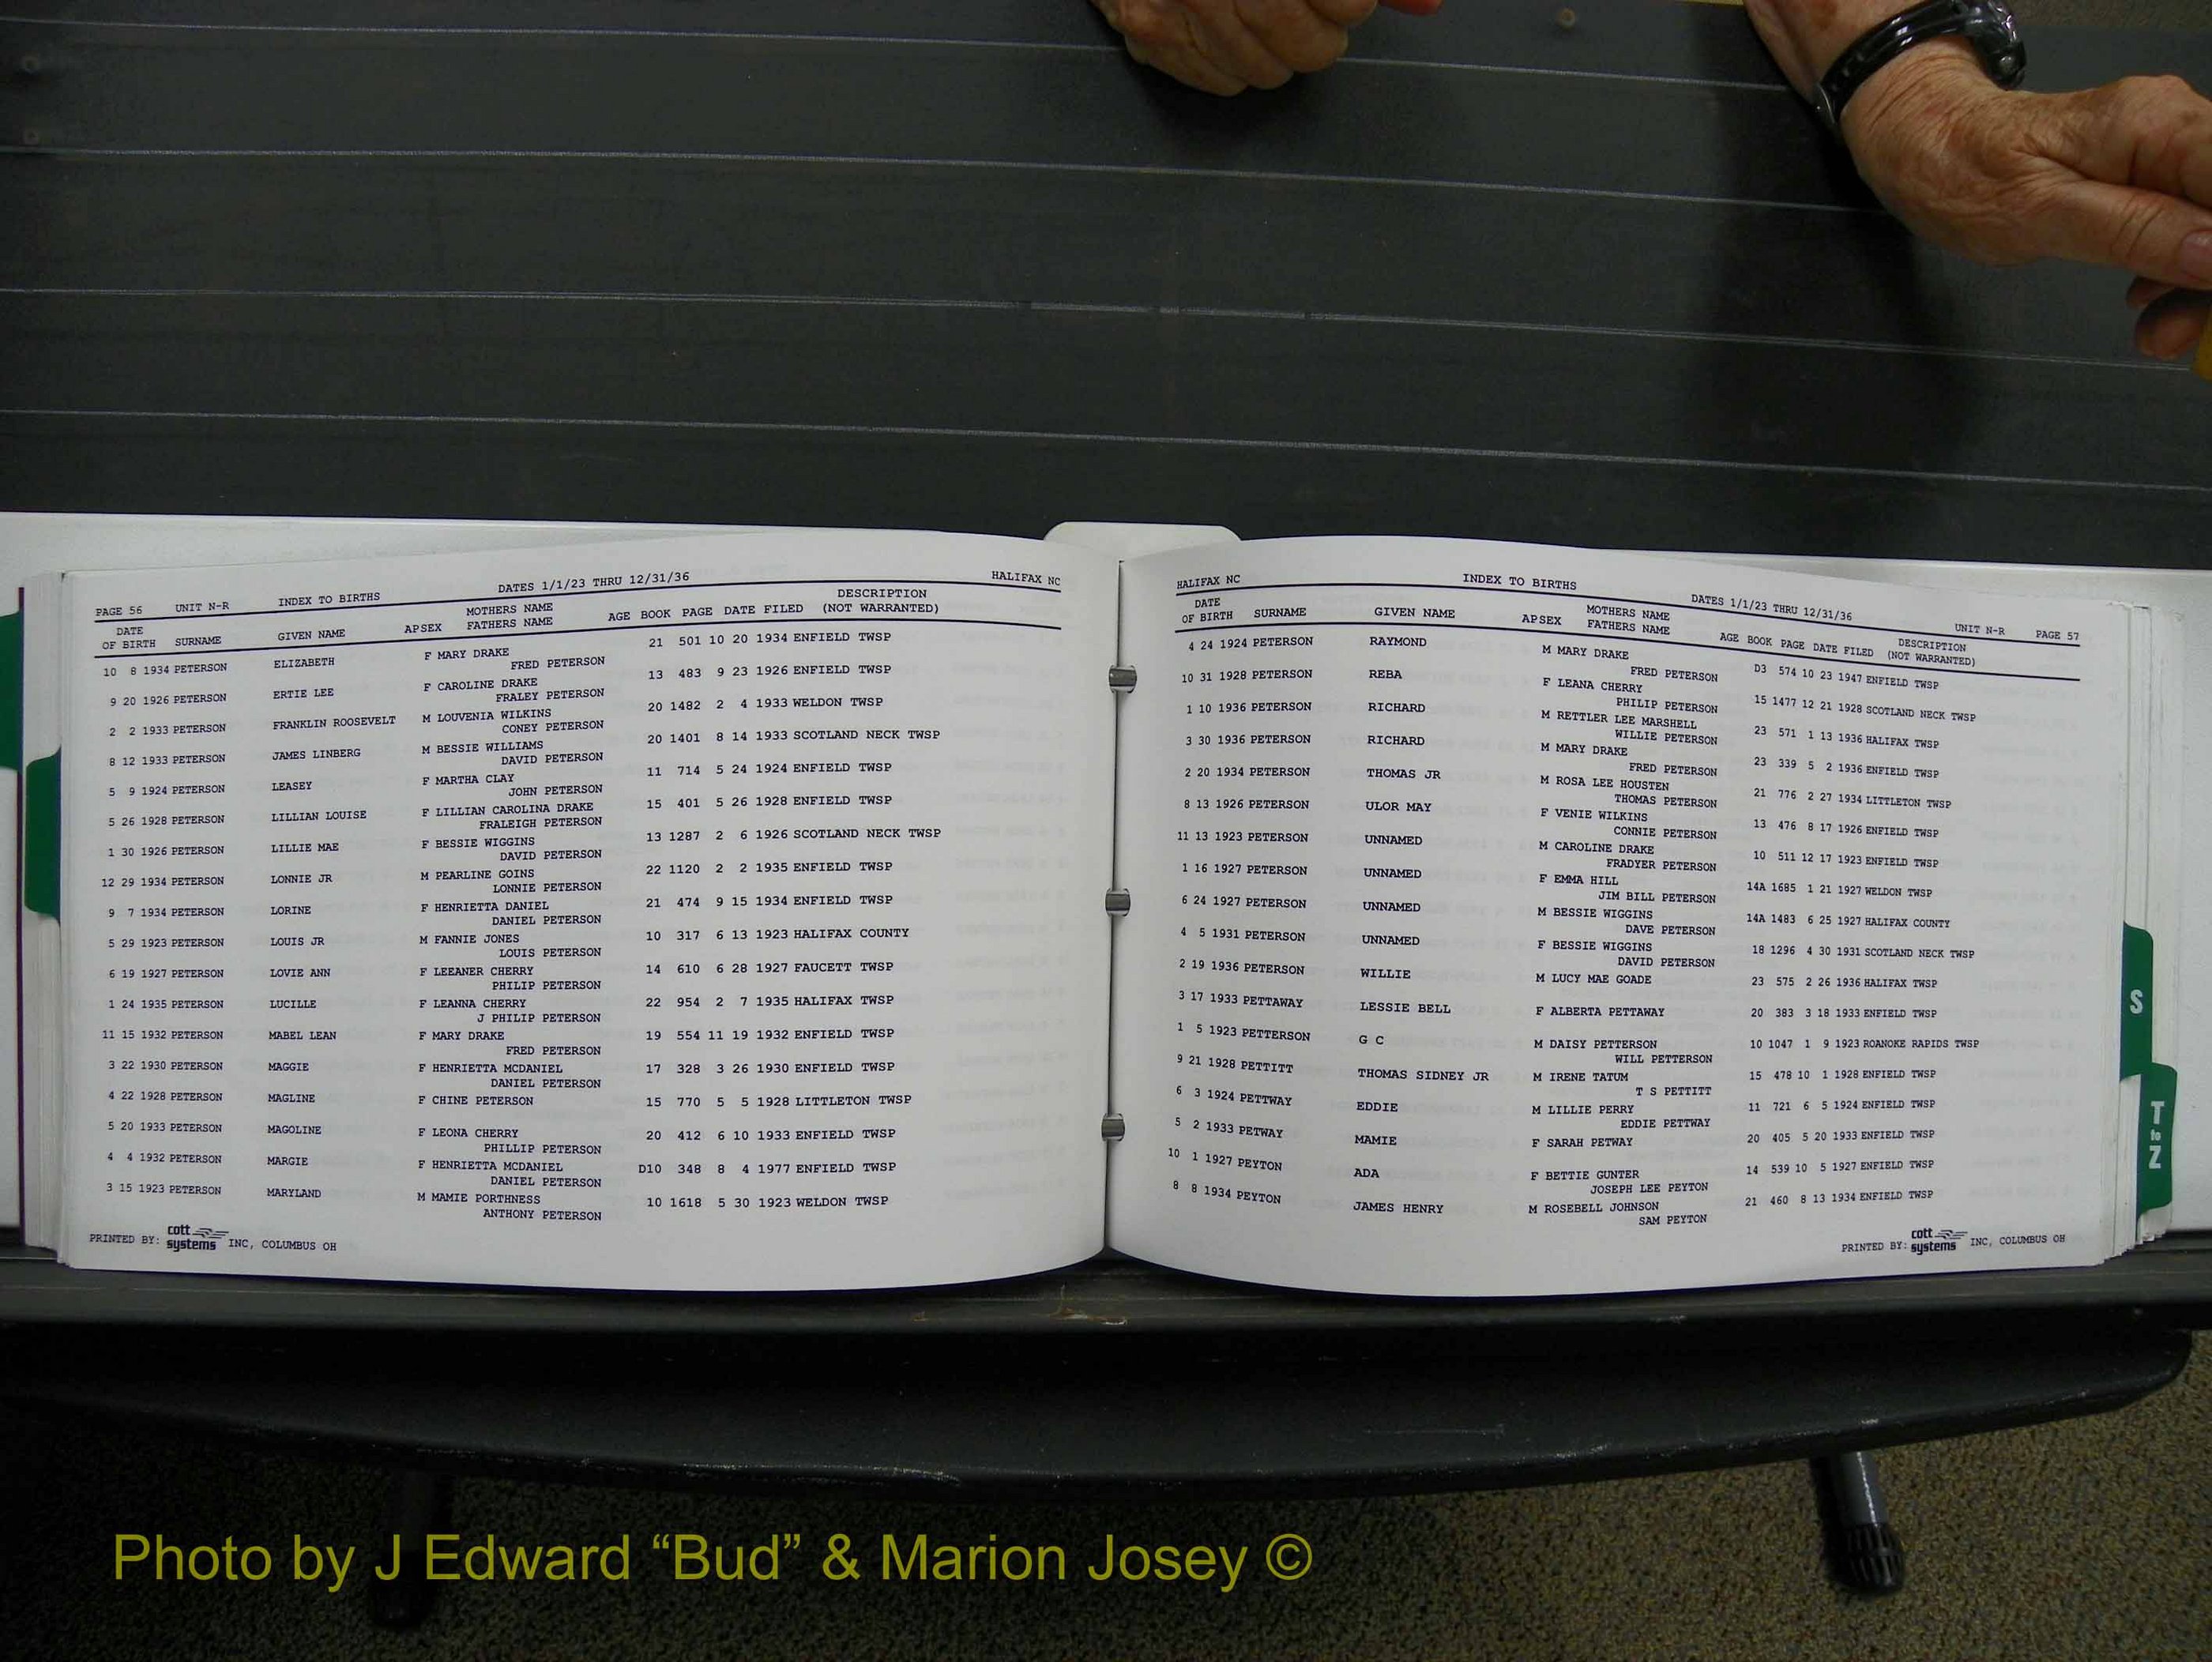 PAGE 56 UNIT N-R INDEX TO BIRTHS DATES 1/1/23 THRU 12/31/36 HALIFAX NC
DATE OF BIRTH SURNAME GIVEN NAME APSEX MOTHERS NAME FATHERS NAME AGE BOOK PAGE DATE FILED DESCRIPTION (NOT WARRANTED)
10 8 1934 PETERSON ELIZABETH F MARY DRAKE 21 501 10 20 1934 ENFIELD TWSP
FRED PETERSON
9 20 1926 PETERSON ERTIE LEE F CAROLINE DRAKE 13 483 9 23 1926 ENFIELD TWSP
FRALEY PETERSON
2 2 1933 PETERSON FRANKLIN ROOSEVELT M LOUVENIA WILKINS 20 1482 2 4 1933 WELDON TWSP
CONEY PETERSON
8 12 1933 PETERSON JAMES LINBERG M BESSIE WILLIAMS 20 1401 8 14 1933 SCOTLAND NECK TWSP
DAVID PETERSON
5 9 1924 PETERSON LEASEY F MARTHA CLAY 11 714 5 24 1924 ENFIELD TWSP
JOHN PETERSON
5 26 1928 PETERSON LILLIAN LOUISE F LILLIAN CAROLINA DRAKE 15 401 5 26 1928 ENFIELD TWSP
FRALEIGH PETERSON
1 30 1926 PETERSON LILLIE MAE F BESSIE WIGGINS 13 1287 2 6 1926 SCOTLAND NECK TWSP
DAVID PETERSON
12 29 1934 PETERSON LONNIE JR M PEARLINE GOINS 22 1120 2 2 1935 ENFIELD TWSP
LONNIE PETERSON
9 7 1934 PETERSON LORINE F HENRIETTA DANIEL 21 474 9 15 1934 ENFIELD TWSP
DANIEL PETERSON
5 29 1923 PETERSON LOUIS JR M FANNIE JONES 10 317 6 13 1923 HALIFAX COUNTY
LOUIS PETERSON
6 19 1927 PETERSON LOVIE ANN F LEEANER CHERRY 14 610 6 28 1927 FAUCETT TWSP
PHILIP PETERSON
1 24 1935 PETERSON LUCILLE F LEANNA CHERRY 22 954 2 7 1935 HALIFAX TWSP
J PHILIP PETERSON
11 15 1932 PETERSON MABEL LEAN F MARY DRAKE 19 554 11 19 1932 ENFIELD TWSP
FRED PETERSON
3 22 1930 PETERSON MAGGIE F HENRIETTA MCDANIEL 17 328 3 26 1930 ENFIELD TWSP
DANIEL PETERSON
4 22 1928 PETERSON MAGLINE F CHINE PETERSON 15 770 5 5 1928 LITTLETON TWSP
5 20 1933 PETERSON MAGOLINE F LEONA CHERRY 20 412 6 10 1933 ENFIELD TWSP
PHILLIP PETERSON
4 4 1932 PETERSON MARGIE F HENRIETTA MCDANIEL D10 348 8 4 1977 ENFIELD TWSP
DANIEL PETERSON
3 15 1923 PETERSON MARYLAND M MAMIE PORTHNESS 10 1618 5 30 1923 WELDON TWSP
ANTHONY PETERSON
PRINTED BY: cott systems INC, COLUMBUS OH
HALIFAX NC INDEX TO BIRTHS DATES 1/1/23 THRU 12/31/36 UNIT N-R PAGE 57
DATE OF BIRTH SURNAME GIVEN NAME APSEX MOTHERS NAME FATHERS NAME AGE BOOK PAGE DATE FILED DESCRIPTION (NOT WARRANTED)
4 24 1924 PETERSON RAYMOND M MARY DRAKE D3 574 10 23 1947 ENFIELD TWSP
FRED PETERSON
10 31 1928 PETERSON REBA F LEANA CHERRY 15 1477 12 21 1928 SCOTLAND NECK TWSP
PHILIP PETERSON
1 10 1936 PETERSON RICHARD M RETTLER LEE MARSHELL 23 571 1 13 1936 HALIFAX TWSP
WILLIE PETERSON
3 30 1936 PETERSON RICHARD M MARY DRAKE 23 339 5 2 1936 ENFIELD TWSP
FRED PETERSON
2 20 1934 PETERSON THOMAS JR M ROSA LEE HOUSTEN 21 776 2 27 1934 LITTLETON TWSP
THOMAS PETERSON
8 13 1926 PETERSON ULOR MAY F VENIE WILKINS 13 476 8 17 1926 ENFIELD TWSP
CONNIE PETERSON
11 13 1923 PETERSON UNNAMED M CAROLINE DRAKE 10 511 12 17 1923 ENFIELD TWSP
FRADYER PETERSON
1 16 1927 PETERSON UNNAMED F EMMA HILL 14A 1685 1 21 1927 WELDON TWSP
JIM BILL PETERSON
6 24 1927 PETERSON UNNAMED M BESSIE WIGGINS 14A 1483 6 25 1927 HALIFAX COUNTY
DAVE PETERSON
4 5 1931 PETERSON UNNAMED F BESSIE WIGGINS 18 1296 4 30 1931 SCOTLAND NECK TWSP
DAVID PETERSON
2 19 1936 PETERSON WILLIE M LUCY MAE GOADE 23 575 2 26 1936 HALIFAX TWSP
3 17 1933 PETTAWAY LESSIE BELL F ALBERTA PETTAWAY 20 383 3 18 1933 ENFIELD TWSP
1 5 1923 PETTERSON G C M DAISY PETTERSON 10 1047 1 9 1923 ROANOKE RAPIDS TWSP
WILL PETTERSON
9 21 1928 PETTITT THOMAS SIDNEY JR M IRENE TATUM 15 478 10 1 1928 ENFIELD TWSP
T S PETTITT
6 3 1924 PETTWAY EDDIE M LILLIE PERRY 11 721 6 5 1924 ENFIELD TWSP
EDDIE PETTWAY
5 2 1933 PETWAY MAMIE F SARAH PETWAY 20 405 5 20 1933 ENFIELD TWSP
10 1 1927 PEYTON ADA F BETTIE GUNTER 14 539 10 5 1927 ENFIELD TWSP
JOSEPH LEE PEYTON
8 8 1934 PEYTON JAMES HENRY M ROSEBELL JOHNSON 21 460 8 13 1934 ENFIELD TWSP
SAM PEYTON
PRINTED BY: cott systems INC, COLUMBUS OH
S
T to Z
Photo by J Edward “Bud” & Marion Josey ©